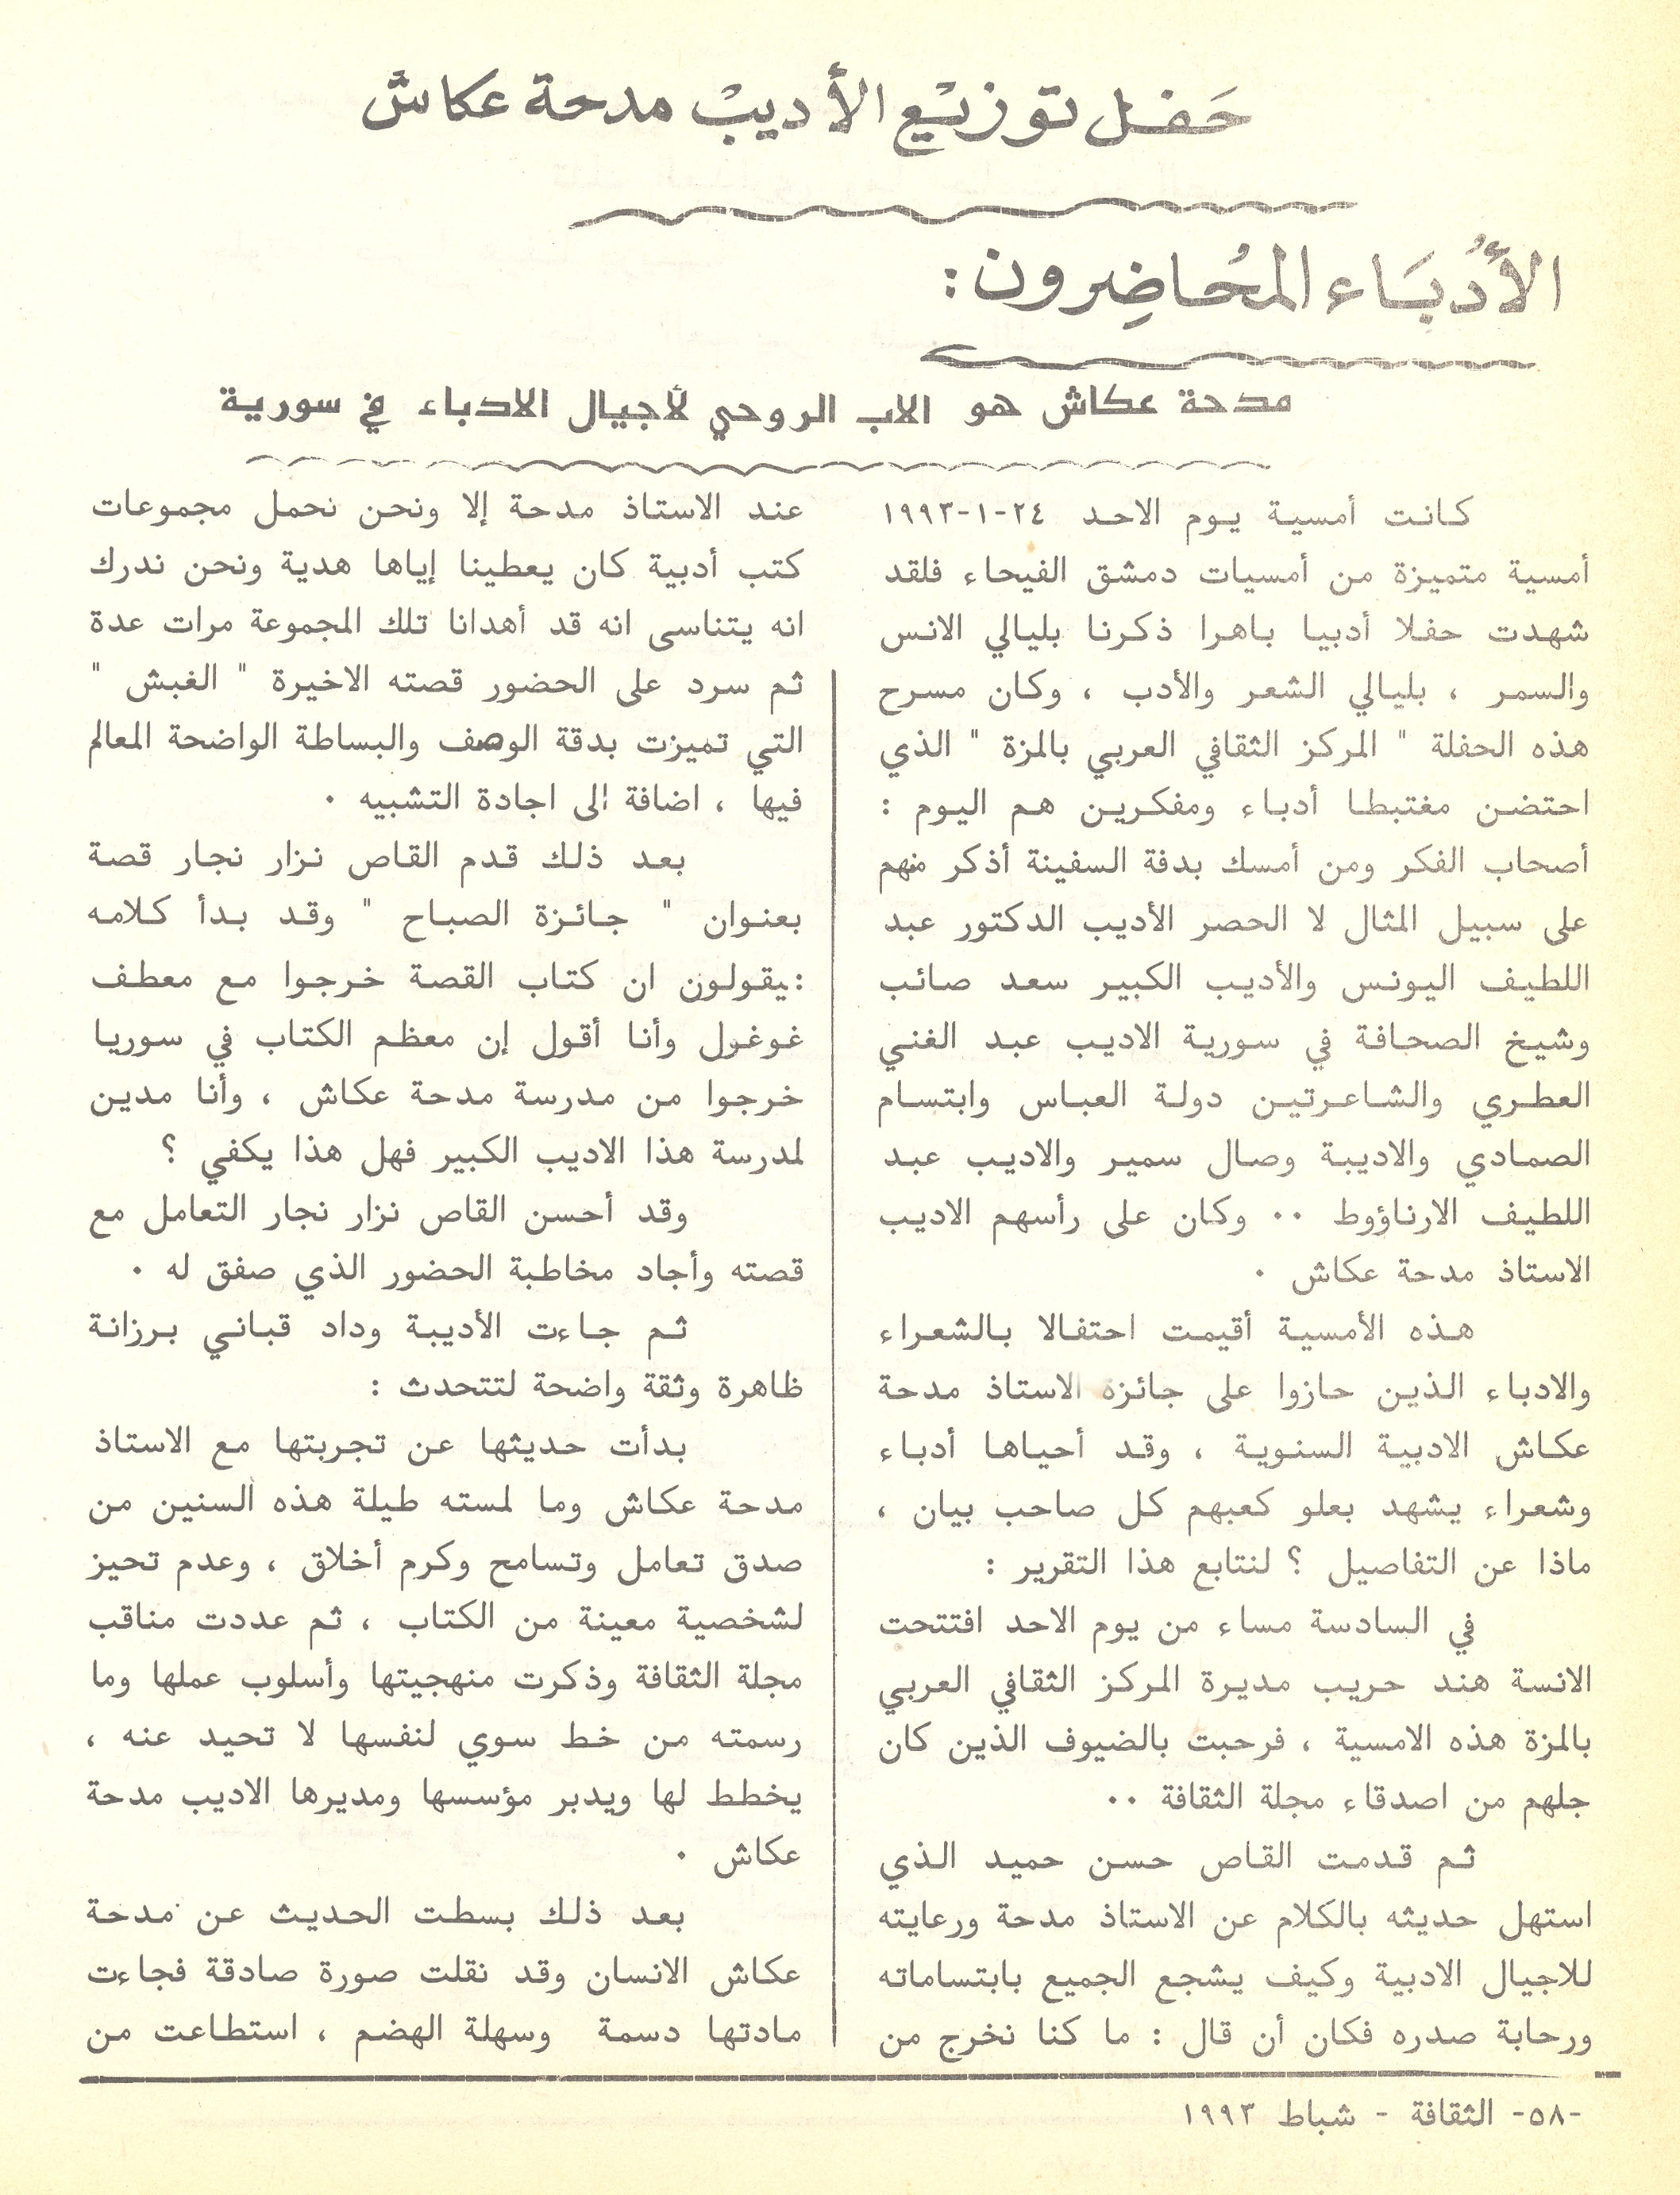 حَفل توزيْع الأديبْ مدحة عكاش
الأُدبَاء المحُاضِرون :
مدحة عكاش هو الاب الروحي لأجيال الادباء في سورية
كانت أمسية يوم الاحد ٢٤-١-١٩٩٣
أمسية متميزة من أمسيات دمشق الفيحاء فلقد
شهدت حفلا أدبيا باهرا ذكرنا بليالي الانس
والسمر ، بليالي الشعر والأدب ، وكان مسرح
هذه الحفلة " المركز الثقافي العربي بالمزة " الذي
احتضن مغتبطا أدباء ومفكرين هم اليوم :
أصحاب الفكر ومن أمسك بدفة السفينة أذكر منهم
على سبيل المثال لا الحصر الأديب الدكتور عبد
اللطيف اليونس والأديب الكبير سعد صائب
وشيخ الصحافة في سورية الاديب عبد الغني
العطري والشاعرتين دولة العباس وابتسام
الصمادي والاديبة وصال سمير والاديب عبد
اللطيف الارناؤوط ٠٠ وكان على رأسهم الاديب
الاستاذ مدحة عكاش ٠
هذه الأمسية أقيمت احتفالا بالشعراء
والادباء الذين حازوا على جائزة الاستاذ مدحة
عكاش الادبية السنوية ، وقد أحياها أدباء
وشعراء يشهد بعلو كعبهم كل صاحب بيان ،
ماذا عن التفاصيل ؟ لنتابع هذا التقرير :
في السادسة مساء من يوم الاحد افتتحت
الانسة هند حريب مديرة المركز الثقافي العربي
بالمزة هذه الامسية ، فرحبت بالضيوف الذين كان
جلهم من اصدقاء مجلة الثقافة ٠٠
ثم قدمت القاص حسن حميد الذي
استهل حديثه بالكلام عن الاستاذ مدحة ورعايته
للاجيال الادبية وكيف يشجع الجميع بابتساماته
ورحابة صدره فكان أن قال : ما كنا نخرج من
عند الاستاذ مدحة إلا ونحن نحمل مجموعات
كتب أدبية كان يعطينا إياها هدية ونحن ندرك
انه يتناسى انه قد أهدانا تلك المجموعة مرات عدة
ثم سرد على الحضور قصته الاخيرة " الغبش "
التي تميزت بدقة الوصف والبساطة الواضحة المعالم
فيها ، اضافة الى اجادة التشبيه ٠
بعد ذلك قدم القاص نزار نجار قصة
بعنوان " جائزة الصباح " وقد بدأ كلامه
:يقولون ان كتاب القصة خرجوا مع معطف
غوغول وأنا أقول إن معظم الكتاب في سوريا
خرجوا من مدرسة مدحة عكاش ، وأنا مدين
لمدرسة هذا الاديب الكبير فهل هذا يكفي ؟
وقد أحسن القاص نزار نجار التعامل مع
قصته وأجاد مخاطبة الحضور الذي صفق له ٠
ثم جاءت الأديبة وداد قباني برزانة
ظاهرة وثقة واضحة لتتحدث :
بدأت حديثها عن تجربتها مع الاستاذ
مدحة عكاش وما لمسته طيلة هذه السنين من
صدق تعامل وتسامح وكرم أخلاق ، وعدم تحيز
لشخصية معينة من الكتاب ، ثم عددت مناقب
مجلة الثقافة وذكرت منهجيتها وأسلوب عملها وما
رسمته من خط سوي لنفسها لا تحيد عنه ،
يخطط لها ويدبر مؤسسها ومديرها الاديب مدحة
عكاش ٠
بعد ذلك بسطت الحديث عن مدحة
عكاش الانسان وقد نقلت صورة صادقة فجاءت
مادتها دسمة وسهلة الهضم ، استطاعت من
-٥٨- الثقافة - شباط ١٩٩٣